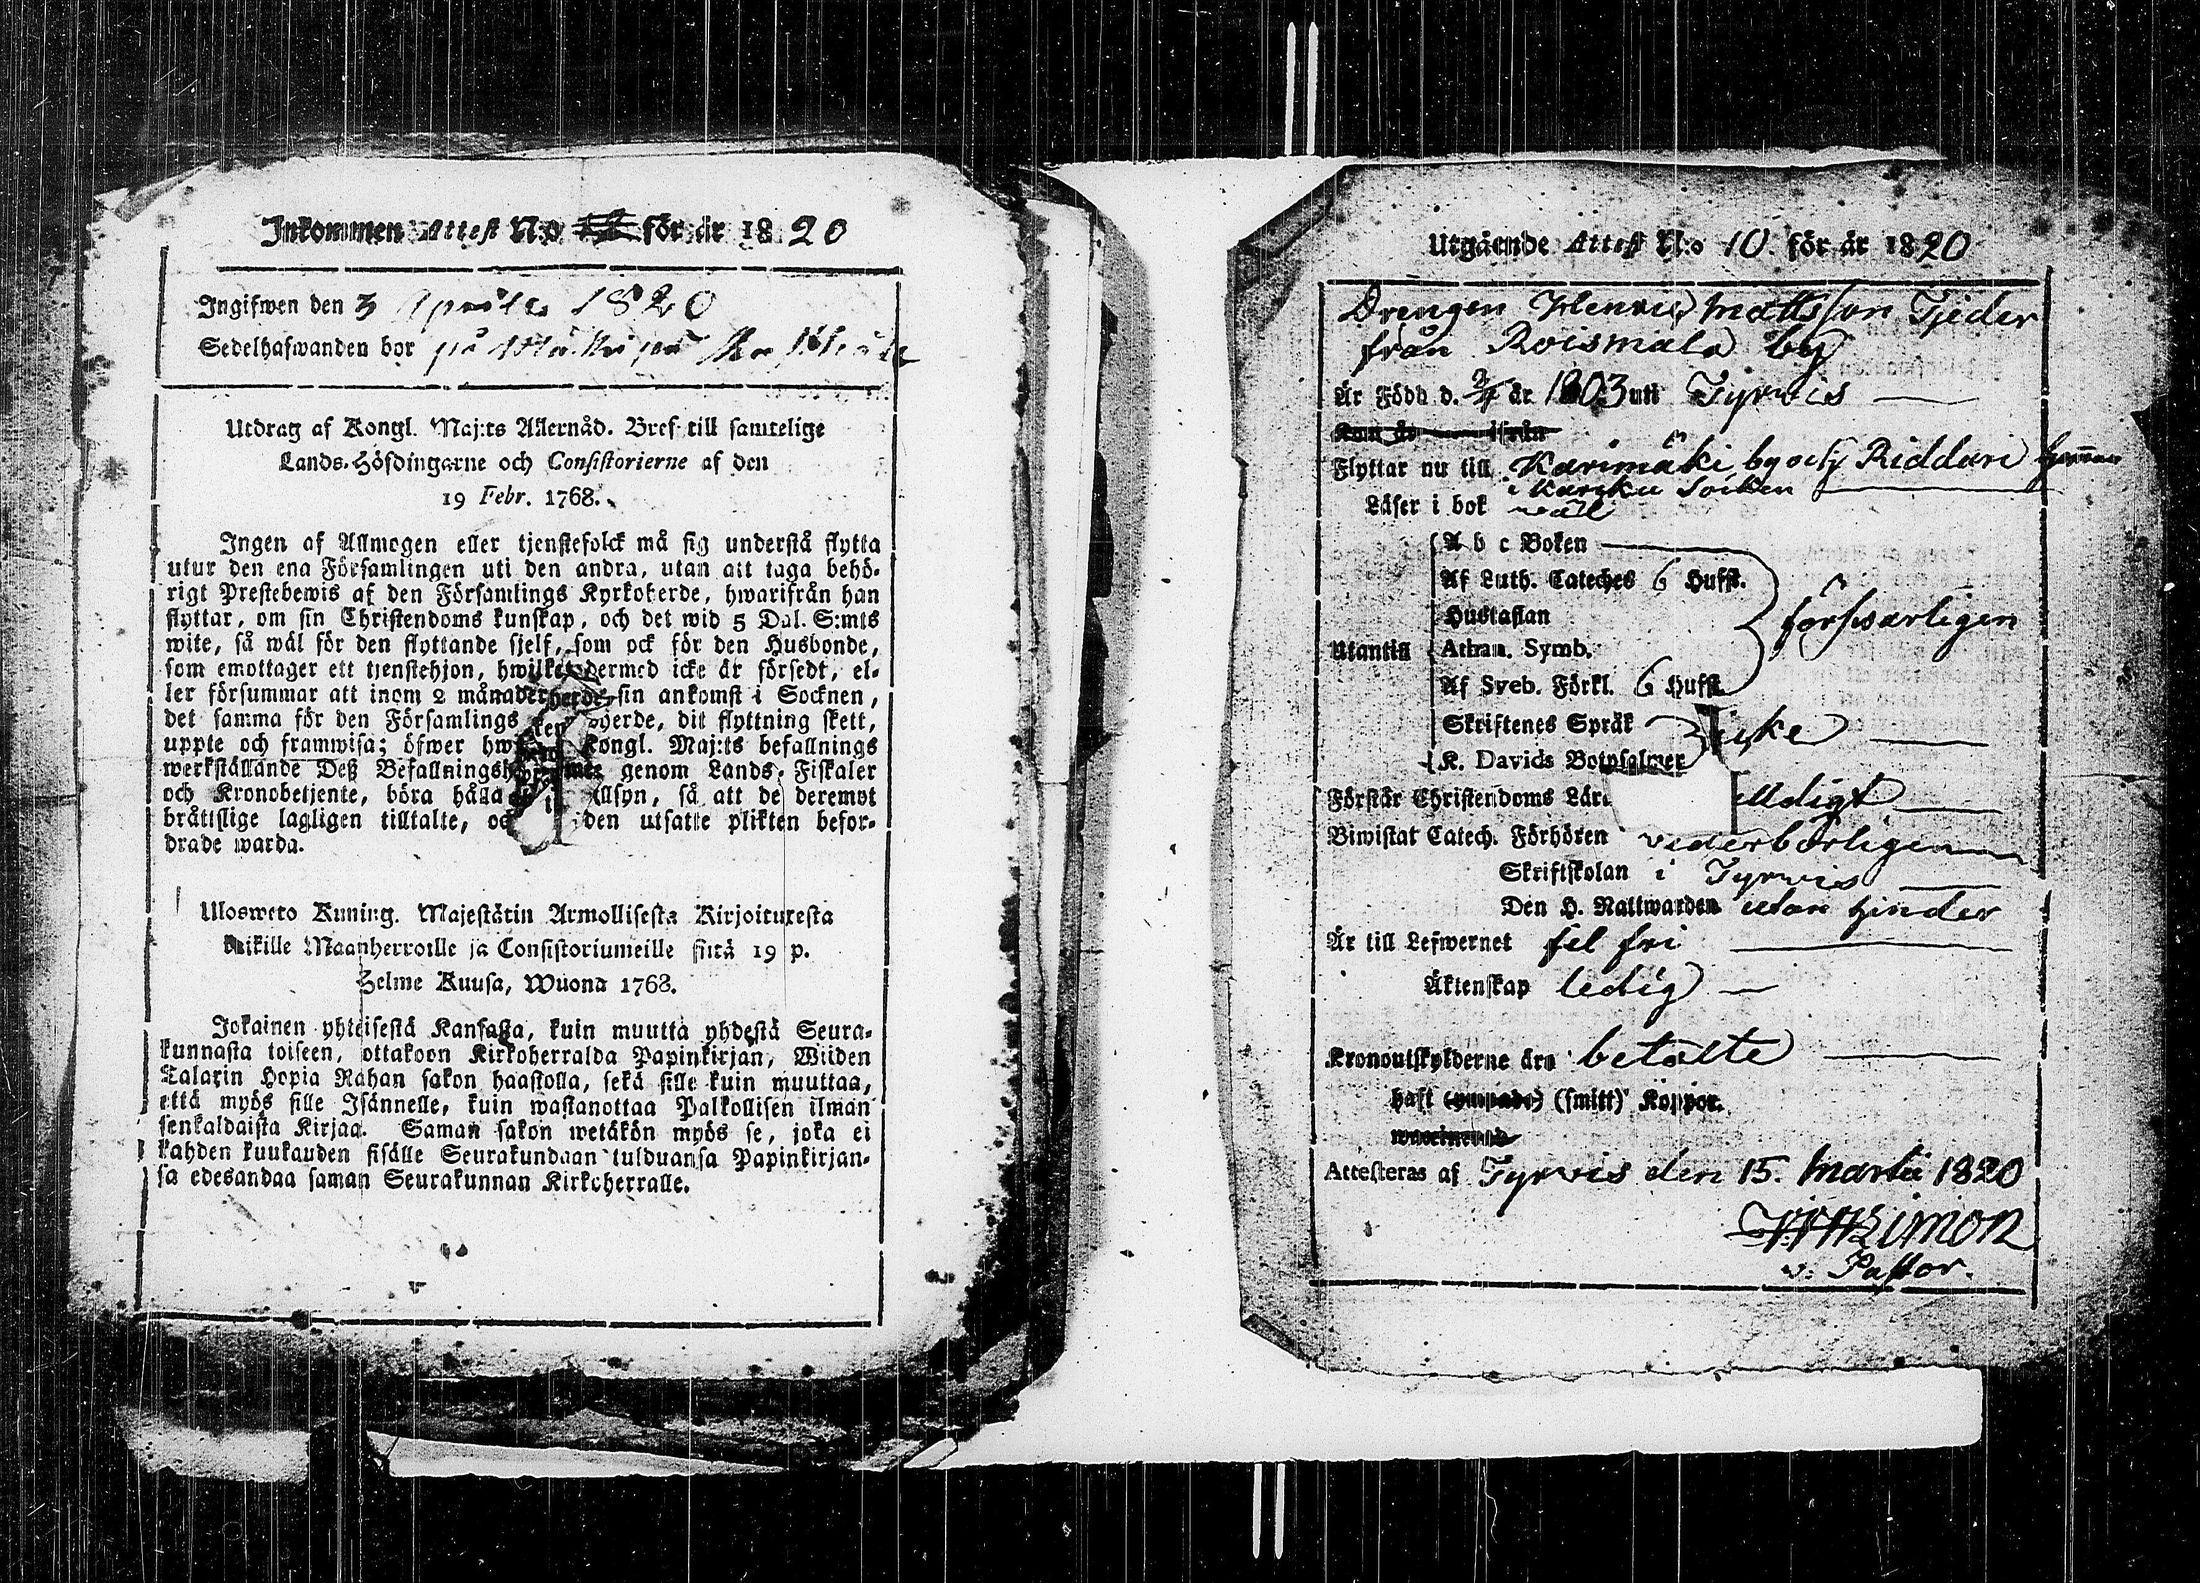 Inkommen Attest N:o för år 1820
Ingifwen den 3 Aprilis 1820
Sedelhafwanden bor på
Utdrag af Kongl. Maj:ts Allernåd. Bref till samtelige
Lands-Höfdingarne och Consistorierne af den
19 Febr. 1768.
Ingen af Allmogen eller tjenstefolck må sig understå flytta
utur den ena Församlingen uti den andra, utan att taga behö-
rigt Prestebewis af den Församlings Kyrkoherde, hwarifrån han
flyttar, om sin Christendoms kunskap, och det wid 5 Dal. S:mts
wite, så wäl för den flyttande sjelf, som ock för den Husbonde,
som emottager ett tjenstehjon, hwilket dermed icke är försedt, el-
ler försummar att inom 2 månader sin ankomst i Socknen,
det samma för den Församlings herde, dit flyttning skett,
uppte och framwisa; öfwer Kongl. Maj:ts befallnings
werkställande Deß genom Lands-Fiskaler
och Kronobetjente, böra hålla illsyn, så att de deremot
bråttslige lagligen tilltalte, oc den utsatte plikten befor-
drade warda.
Ulosweto Kuning. Majestätin Armollisesta Kirjoituxesta
kaikille Maanherroille ja Consistoriumeille siitä 19 p.
Helme Kuusa, Wuona 1768.
Jokainen yhteisestä Kansasta, kuin muutta yhdestä Seura-
kunnasta toiseen, ottakoon Kirkoherralda Papinkirjan, Wiiden
Talarin Hopia Rahan sakon haastolla, sekä sille kuin muuttaa,
että myös sille Isännelle, kuin wastanottaa Palkollisen ilman
senkaldaista Kirjaa. Saman sakon wetäkön myös se, joka ei
kahden kuukauden sisälle Seurakundaan tulduansa Papinkirjan-
sa edesandaa saman Seurakunnan Kirkoherralle.
Utgående Attest N:o 10. för år 1820
Drengen Henric Mattsson Tjeder
från Roismala by
Är Född d. 2/4 år 1803 uti Tyrvis
Kom år ifrån
Flyttar nu till Karimäki by och Riddari
i Karku Socken
Läser i bok wäl
A b c Boken
Af Luth. Cateches 6 Hufst.
Hustaflan
försvarligen
Utantill Athan. Symb.
Af Sveb. Förkl. 6 Hufst.
Skriftenes Språk
icke
K. Davids Botpsalmer
Förstår Christendoms Lär lldigt
Biwistat Catech. Förhören vederbörligen
Skriftskolan i Tyrvis
Den H. Nattwarden utan hinder
Är till Lefwernet fel fri
Äktenskap ledig
Kronoutskylderne äro betalte
haft (ympade) (smitt) Koppor.
Attesteras af Tyrvis den 15. Martii 1820
v. Pastor.